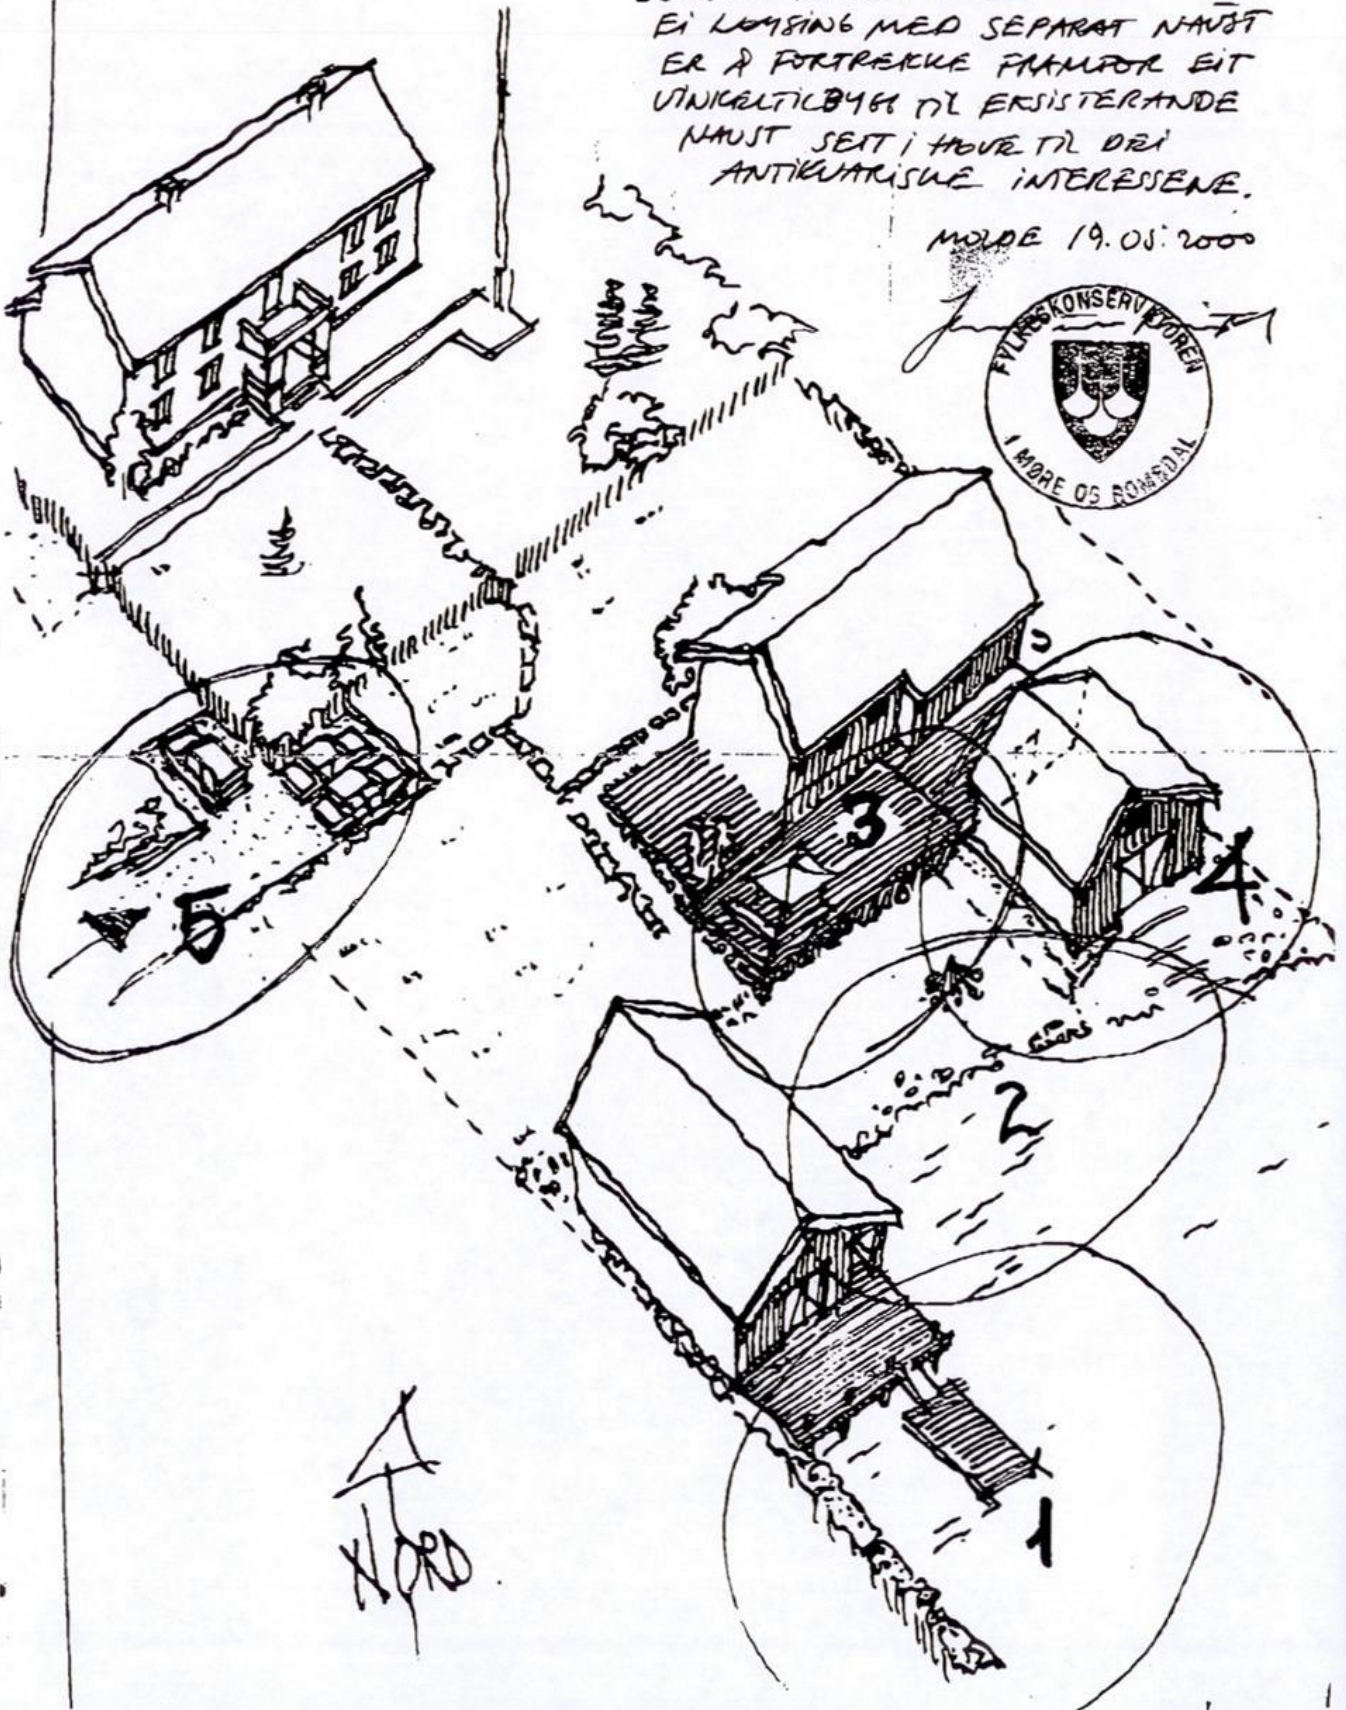 EI LØYSING MED SEPARAT NAUST
ER Å FORTREKKE FRAMFOR EIT
VINKELTILBYGG TIL EKSISTERANDE
NAUST SETT I HOVE TIL DEI
ANTIKVARISKE INTERESSENE.
MOLDE 19.05.2000
FYLKESKONSERVATOREN
I MØRE OG ROMSDAL
3
4
5
2
1
NORD